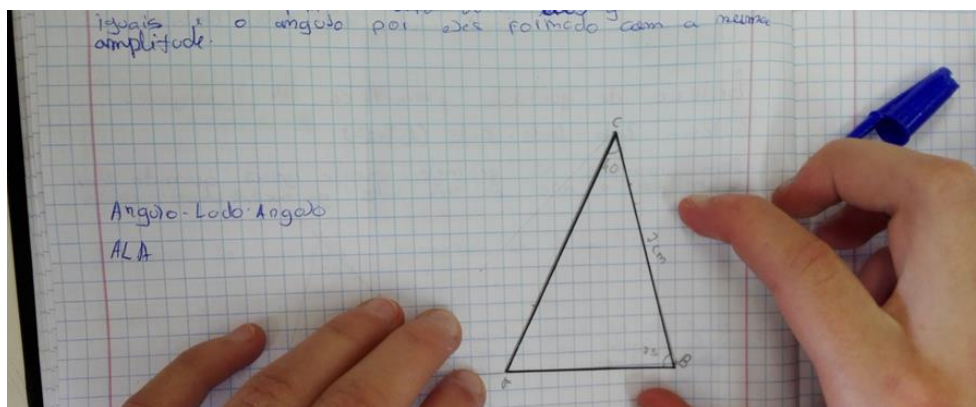 iguais e o angulo por eles formado com a mesma
amplitude.
C
40
Angulo-Lado-Angulo
ALA
7cm
75 B
A